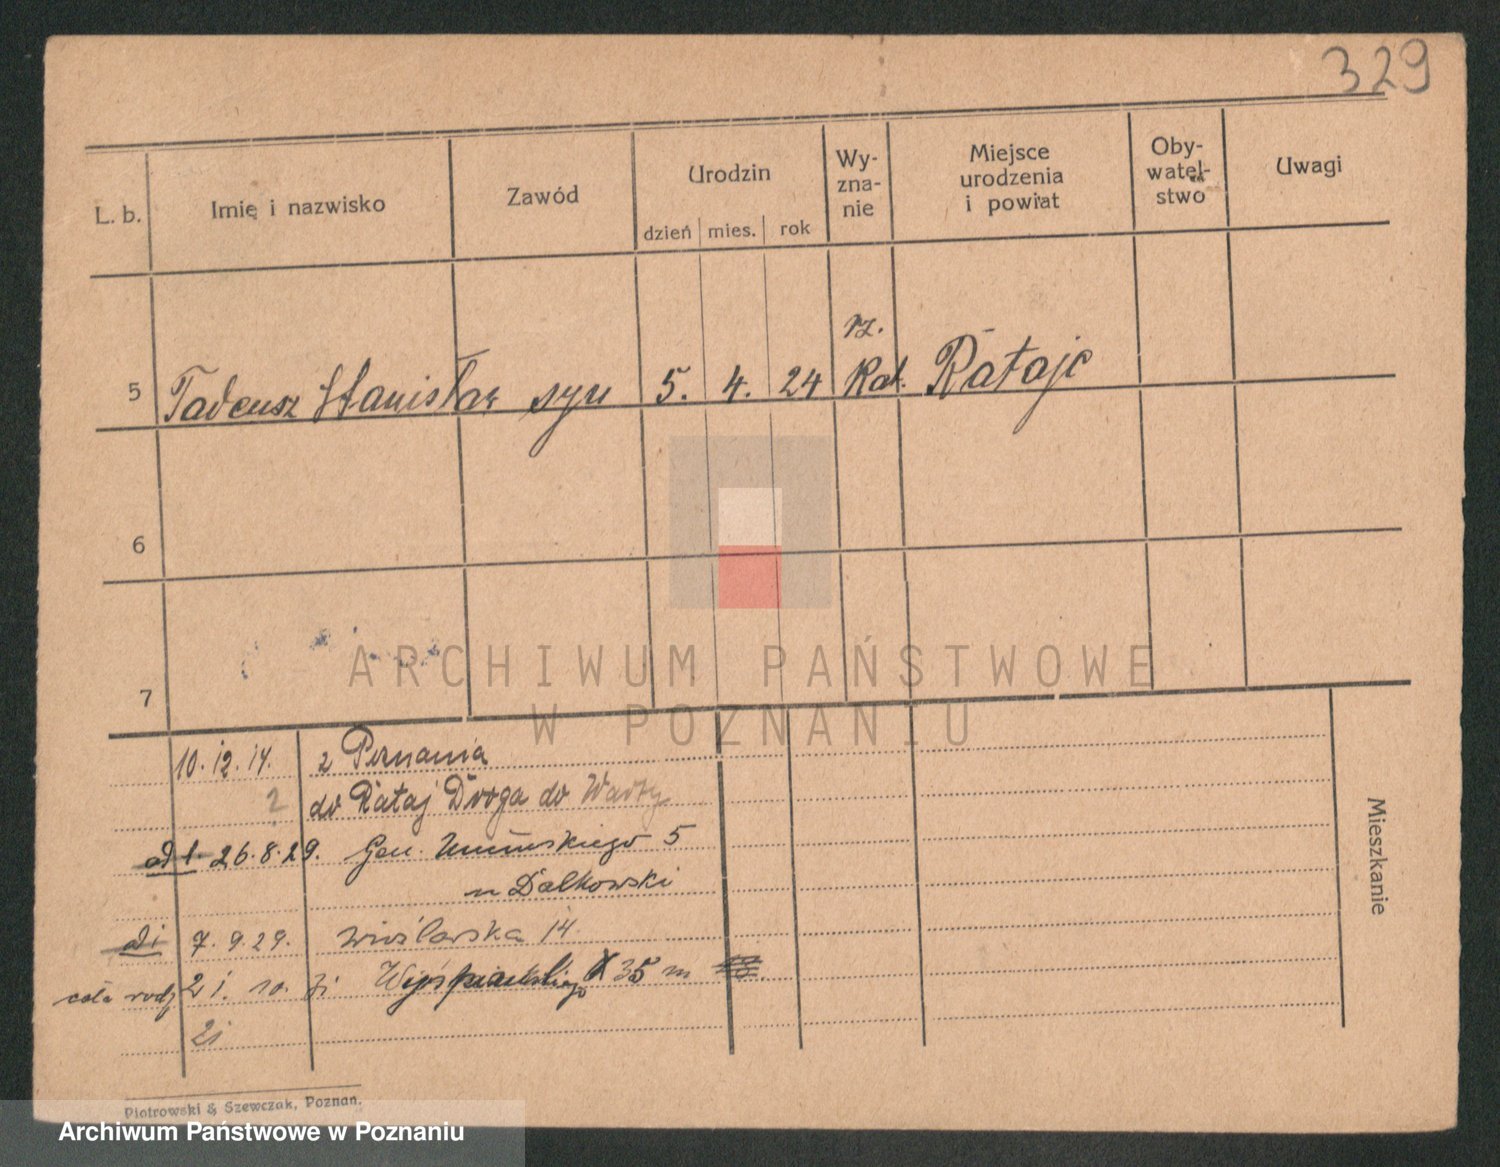 329
L. b. Imię i nazwisko Zawód Urodzin dzień mies. rok Wy-zna-nie Miejsce urodzenia i powiat Oby-watel-stwo Uwagi
rz.
5 Tadeusz Stanisław syn 5. 4. 24 Kat. Rataje
6
7
10. 12. 14. z Poznania
2 do Rataj Droga do Warty
od 1 26. 8. 29. Gen. Umińskiego 5
Dalkowski
7. 9. 29. Wioślarska 14
cała rodz 21. 10. 31 Wyspiańskiego 35 m
Mieszkanie
Piotrowski & Szewczak, Poznań.
ARCHIWUM PAŃSTWOWE
W POZNANIU
Archiwum Państwowe w Poznaniu